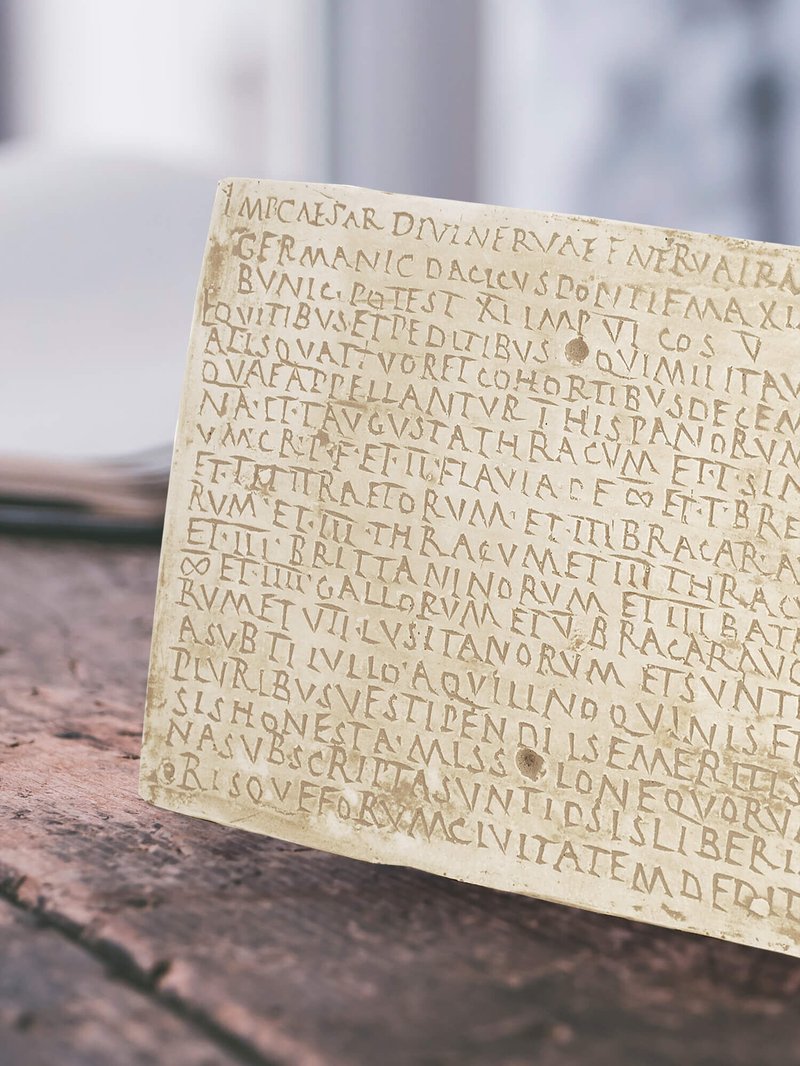 IMP CAESAR DIVI NERVAE F NERVA TRA
GERMANIC DACICVS PONTIF MAXI
BVNIC POTEST XI IMP VI COS V
EQVITIBVS ET PEDITIBVS QVI MILITAV
ALIS QVATTVOR ET COHORTIBVS DECEM
QVAE APPELLANTVR I HISPANORVM
NA ET I AVGVSTA THRACVM ET I SIN
VM C R P F ET II FLAVIA P F ∞ ET I BRE
ET I RAETORVM ET III BRACARA
RVM ET III THRACVM ET III THRACV
ET III BRITTANINORVM ET IIII BAT
∞ ET IIII GALLORVM ET V BRACARAVG
RVM ET VII LVSITANORVM ET SVNT I
A SVB TI IVLIO AQVILINO QVINIS ET
PLVRIBVSVE STIPENDIIS EMERITIS
SIS HONESTA MISSIONE QVORVM
NA SVBSCRIPTA SVNT IPSIS LIBERI
ORISQVE EORVM CIVITATEM DEDIT